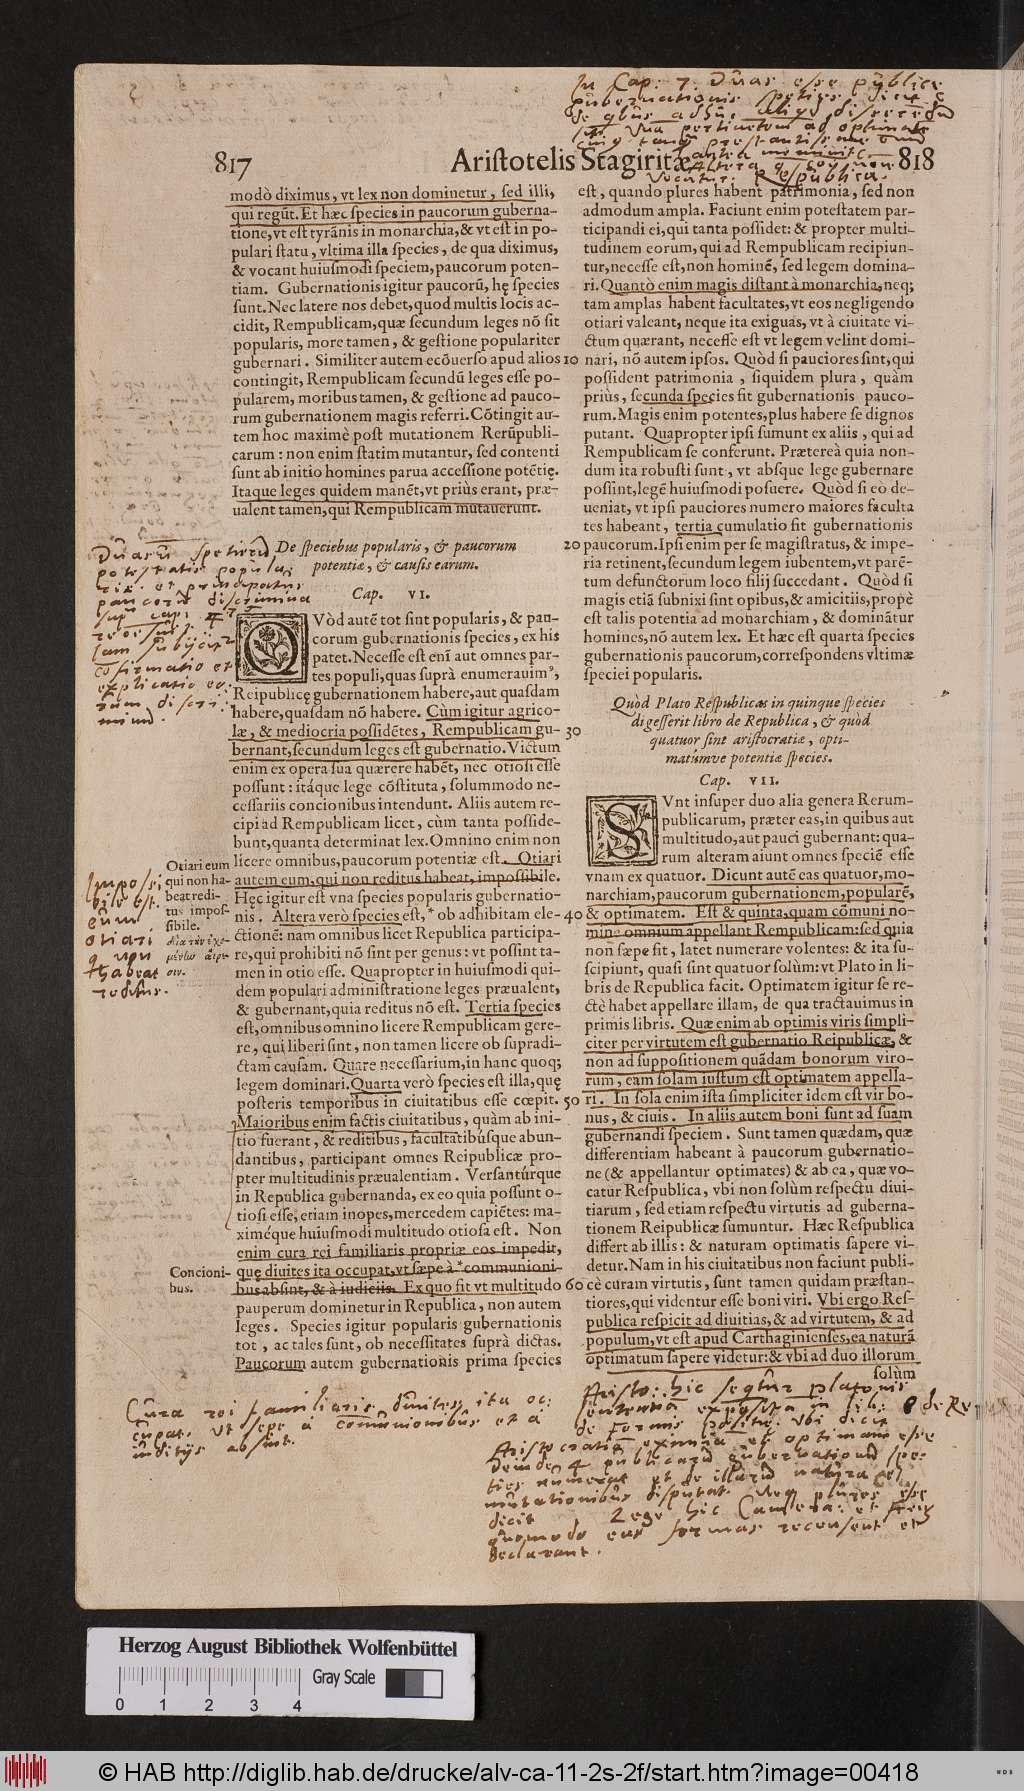 In Cap: 7. Duas esse publice
gubernationis species dicit e
vocatur: Respublica.
817 Aristotelis Stagiritæ 818
modò diximus, vt lex non dominetur, sed illi,
qui regũt. Et hæc species in paucorum guberna-
tione, vt est tyrãnis in monarchia, & vt est in po-
pulari statu, vltima illa species, de qua diximus,
& vocant huiusmodi speciem, paucorum poten-
tiam. Gubernationis igitur paucorũ, hę species
sunt. Nec latere nos debet, quod multis locis ac-
cidit, Rempublicam, quæ secundum leges nõ sit
popularis, more tamen, & gestione populariter
gubernari. Similiter autem ecõuerso apud alios 10
contingit, Rempublicam secundũ leges esse po-
pularem, moribus tamen, & gestione ad pauco-
rum gubernationem magis referri. Cõtingit au-
tem hoc maximè post mutationem Rerũpubli-
carum: non enim statim mutantur, sed contenti
sunt ab initio homines parua accessione potẽtię.
Itaque leges quidem manẽt, vt priùs erant, præ-
ualent tamen, qui Rempublicam mutauerunt.
De speciebus popularis, & paucorum 20
potentiæ, & causis earum.
Cap. VI.
QVòd autẽ tot sint popularis, & pau-
corum gubernationis species, ex his
patet. Necesse est enĩ aut omnes par-
tes populi, quas suprà enumerauimꝰ,
Reipublicę gubernationem habere, aut quasdam
habere, quasdam nõ habere. Cùm igitur agrico-
læ, & mediocria possidẽtes, Rempublicam gu- 30
bernant, secundum leges est gubernatio. Victum
enim ex opera sua quærere habẽt, nec otiosi esse
possunt: itáque lege cõstituta, solummodo ne-
cessariis concionibus intendunt. Aliis autem re-
cipi ad Rempublicam licet, cùm tanta posside-
bunt, quanta determinat lex. Omnino enim non
licere omnibus, paucorum potentiæ est. Otiari
autem eum, qui non reditus habeat, impossibile.
Hęc igitur est vna species popularis gubernatio-
nis. Altera verò species est, * ob adhibitam ele- 40
ctionẽ: nam omnibus licet Republica participa-
re, qui prohibiti nõ sint per genus: vt possint ta-
men in otio esse. Quapropter in huiusmodi qui-
dem populari administratione leges præualent,
& gubernant, quia reditus nõ est. Tertia species
est, omnibus omnino licere Rempublicam gere-
re, qui liberi sint, non tamen licere ob supradi-
ctam causam. Quare necessarium, in hanc quoq;
legem dominari. Quarta verò species est illa, quę
posteris temporibus in ciuitatibus esse cœpit. 50
Maioribus enim factis ciuitatibus, quàm ab ini-
tio fuerant, & reditibus, facultatibúsque abun-
dantibus, participant omnes Reipublicæ pro-
pter multitudinis præualentiam. Versantúrque
in Republica gubernanda, ex eo quia possunt o-
tiosi esse, etiam inopes, mercedem capiẽtes: ma-
ximéque huiusmodi multitudo otiosa est. Non
enim cura rei familiaris propriæ eos impedit,
quę diuites ita occupat, vt sæpe à * communioni-
bus absint, & à iudiciis. Ex quo fit vt multitudo 60
pauperum dominetur in Republica, non autem
leges. Species igitur popularis gubernationis
tot, ac tales sunt, ob necessitates suprà dictas.
Paucorum autem gubernationis prima species
Otiari eum
qui non ha-
beat redi-
tus impos-
sibile.
Concioni-
bus.
est, quando plures habent patrimonia, sed non
admodum ampla. Faciunt enim potestatem par-
ticipandi ei, qui tanta possidet: & propter multi-
tudinem eorum, qui ad Rempublicam recipiun-
tur, necesse est, non hominẽ, sed legem domina-
ri. Quantò enim magis distant à monarchia, neq;
tam amplas habent facultates, vt eos negligendo
otiari valeant, neque ita exiguas, vt à ciuitate vi-
ctum quærant, necesse est vt legem velint domi-
nari, nõ autem ipsos. Quòd si pauciores sint, qui
possident patrimonia, siquidem plura, quàm
priùs, secunda species fit gubernationis pauco-
rum. Magis enim potentes, plus habere se dignos
putant. Quapropter ipsi sumunt ex aliis, qui ad
Rempublicam se conferunt. Prætereà quia non-
dum ita robusti sunt, vt absque lege gubernare
possint, legẽ huiusmodi posuere. Quòd si eò de-
ueniat, vt ipsi pauciores numero maiores faculta
tes habeant, tertia cumulatio fit gubernationis
paucorum. Ipsi enim per se magistratus, & impe-
ria retinent, secundum legem iubentem, vt parẽ-
tum defunctorum loco filij succedant. Quòd si
magis etiã subnixi sint opibus, & amicitiis, propè
est talis potentia ad monarchiam, & dominãtur
homines, nõ autem lex. Et hæc est quarta species
gubernationis paucorum, correspondens vltimæ
speciei popularis.
Quòd Plato Respublicas in quinque species
digesserit libro de Republica, & quòd
quatuor sint aristocratiæ, opti-
matiumve potentiæ species.
Cap. VII.
SVnt insuper duo alia genera Rerum-
publicarum, præter eas, in quibus aut
multitudo, aut pauci gubernant: qua-
rum alteram aiunt omnes speciẽ esse
vnam ex quatuor. Dicunt autẽ eas quatuor, mo-
narchiam, paucorum gubernationem, popularẽ,
& optimatem. Est & quinta, quam cõmuni no-
mine omnium appellant Rempublicam: sed quia
non sæpe fit, latet numerare volentes: & ita su-
scipiunt, quasi sint quatuor solùm: vt Plato in li-
bris de Republica facit. Optimatem igitur se re-
ctè habet appellare illam, de qua tractauimus in
primis libris. Quæ enim ab optimis viris simpli-
citer per virtutem est gubernatio Reipublicæ, &
non ad suppositionem quãdam bonorum viro-
rum, eam solam iustum est optimatem appella-
ri. In sola enim ista simpliciter idem est vir bo-
nus, & ciuis. In aliis autem boni sunt ad suam
gubernandi speciem. Sunt tamen quædam, quæ
differentiam habeant à paucorum gubernatio-
ne (& appellantur optimates) & ab ea, quæ vo-
catur Respublica, vbi non solùm respectu diui-
tiarum, sed etiam respectu virtutis ad guberna-
tionem Reipublicæ sumuntur. Hæc Respublica
differt ab illis: & naturam optimatis sapere vi-
detur. Nam in his ciuitatibus non faciunt publi-
cè curam virtutis, sunt tamen quidam præstan-
tiores, qui videntur esse boni viri. Vbi ergo Res-
publica respicit ad diuitias, & ad virtutem, & ad
populum, vt est apud Carthaginienses, ea naturã
optimatum sapere videtur: & vbi ad duo illorum
solùm
Impossi
bile est.
eum
otiari
q non
habeat
reditus.
Cura rei familiaris divites ita oc:
cupat. ut sepe a communionibus et a
inditiis absint.
Aristo: hic sequitur platonis
sententia exposita in lib: 8 de Re
de Formis positis. Vbi dicit
Aristocratiam eximiam et optimam esse
Deinde 4 publicarum gubernationum spe:
ties numerat et de illarum natura et
mutationibus disputat. Neq plures esse
dicit Lege hic Camera: et Freig
quomodo eas formas recensent et
declarant.
Herzog August Bibliothek Wolfenbüttel
Gray Scale
0 1 2 3 4
© HAB http://diglib.hab.de/drucke/alv-ca-11-2s-2f/start.htm?image=00418